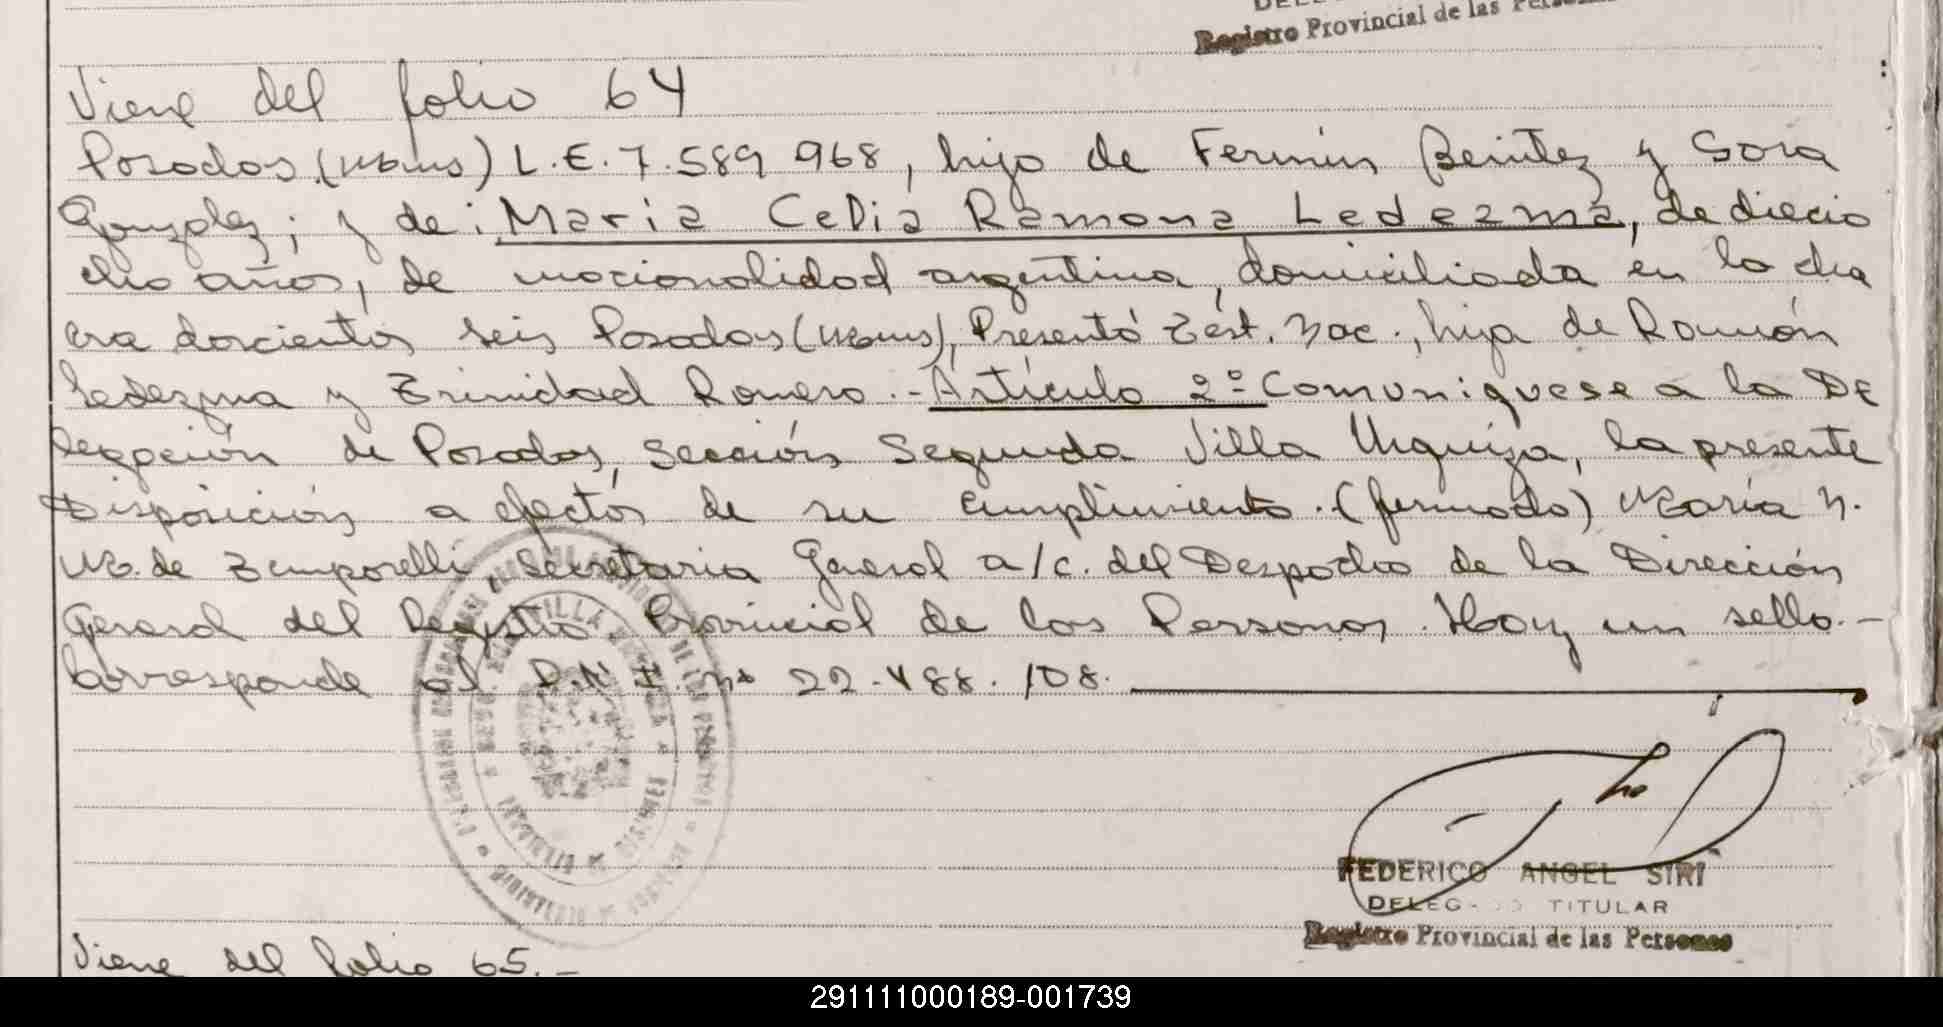 Registro Provincial de las Personas
Viene del folio 64
Posadas (Mnes) L.E. 7.589.968, hijo de Fermín Benítez y Sara
González; y de: Maria Celia Ramona Ledezma, de diecio
cho años, de nacionalidad argentina, domiciliada en la cha
cra doscientos seis Posadas (Mnes), Presentó Test. Nac., hija de Ramón
Ledezma y Trinidad Romero.- Artículo 2º Comuníquese a la De
legación de Posadas, Sección Segunda Villa Urquiza, la presente
Disposición a efectos de su cumplimiento. (firmado) María N.
M. de Temporelli, Secretaria General a/c. del Despacho de la Dirección
General del Registro Provincial de las Personas. Hay un sello.-
Corresponde al D.N.I. nº 22.488.108.
FEDERICO ANGEL SIRI
DELEGADO TITULAR
Registro Provincial de las Personas
Viene del folio 65.-
291111000189-001739